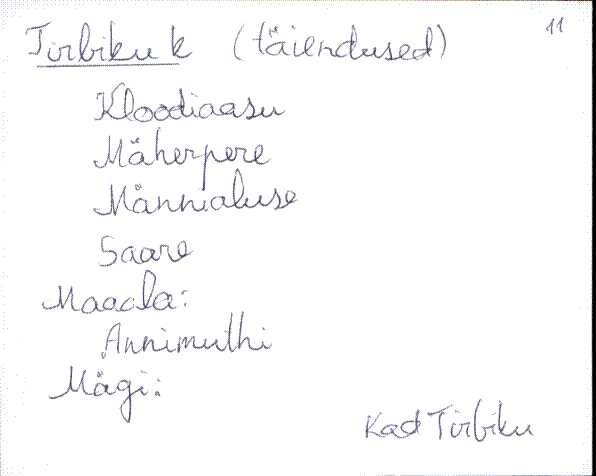 Tirbiku k (täiendused) 11
Kloodiaasu
Mäherpere
Männialuse
Saare
Maaala:
Annimuthi
Mägi:
Kad Tirbiku